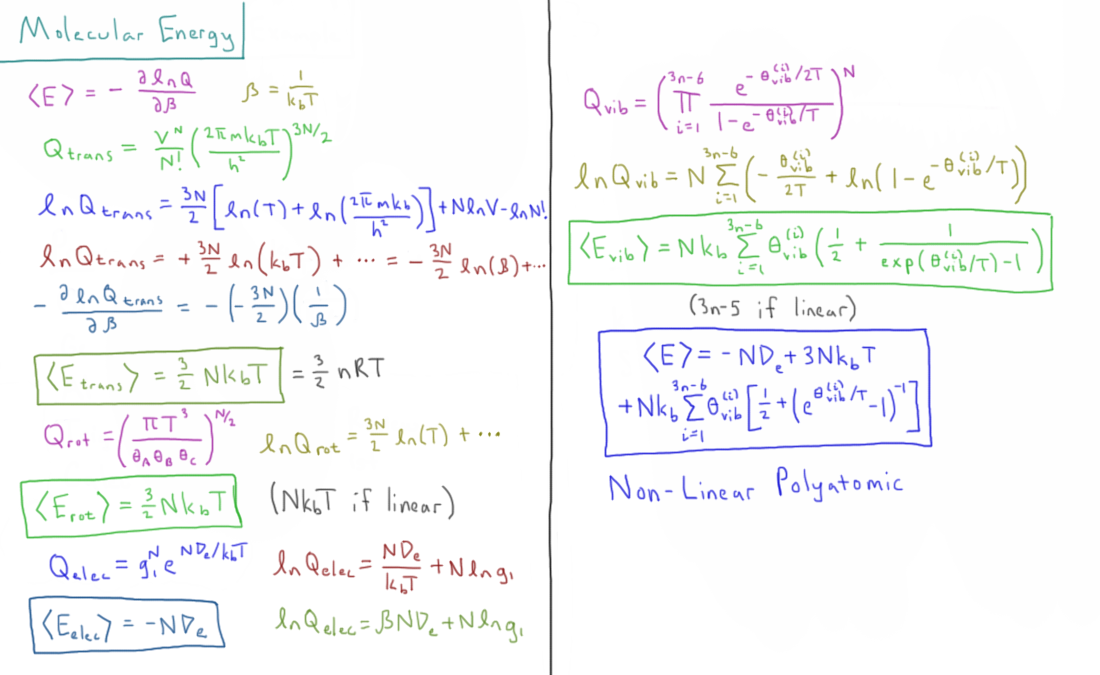 Molecular Energy
⟨E⟩ = - ∂lnQ/∂β   β = 1/(k_bT)
Q_trans = V^N/N! (2πmk_bT/h²)^(3N/2)
lnQ_trans = 3N/2 [ln(T) + ln(2πmk_b/h²)] + NlnV - lnN!
lnQ_trans = + 3N/2 ln(k_bT) + ... = - 3N/2 ln(β) + ...
- ∂lnQ_trans/∂β = - (-3N/2)(1/β)
⟨E_trans⟩ = 3/2 Nk_bT = 3/2 nRT
Q_rot = (πT³/(θ_A θ_B θ_C))^(N/2)   lnQ_rot = 3N/2 ln(T) + ...
⟨E_rot⟩ = 3/2 Nk_bT (Nk_bT if linear)
Q_elec = g_1^N e^(ND_e/k_bT)   lnQ_elec = ND_e/(k_bT) + Nlng_1
⟨E_elec⟩ = -ND_e   lnQ_elec = βND_e + Nlng_1
Q_vib = (∏_(i=1)^(3n-6) e^(-θ_vib^(i)/2T) / (1 - e^(-θ_vib^(i)/T)))^N
lnQ_vib = N ∑_(i=1)^(3n-6) (- θ_vib^(i)/2T + ln(1 - e^(-θ_vib^(i)/T)))
⟨E_vib⟩ = Nk_b ∑_(i=1)^(3n-6) θ_vib^(i) (1/2 + 1/(exp(θ_vib^(i)/T) - 1))
(3n-5 if linear)
⟨E⟩ = -ND_e + 3Nk_bT
+ Nk_b ∑_(i=1)^(3n-6) θ_vib^(i) [1/2 + (e^(θ_vib^(i)/T) - 1)^(-1)]
Non-Linear Polyatomic